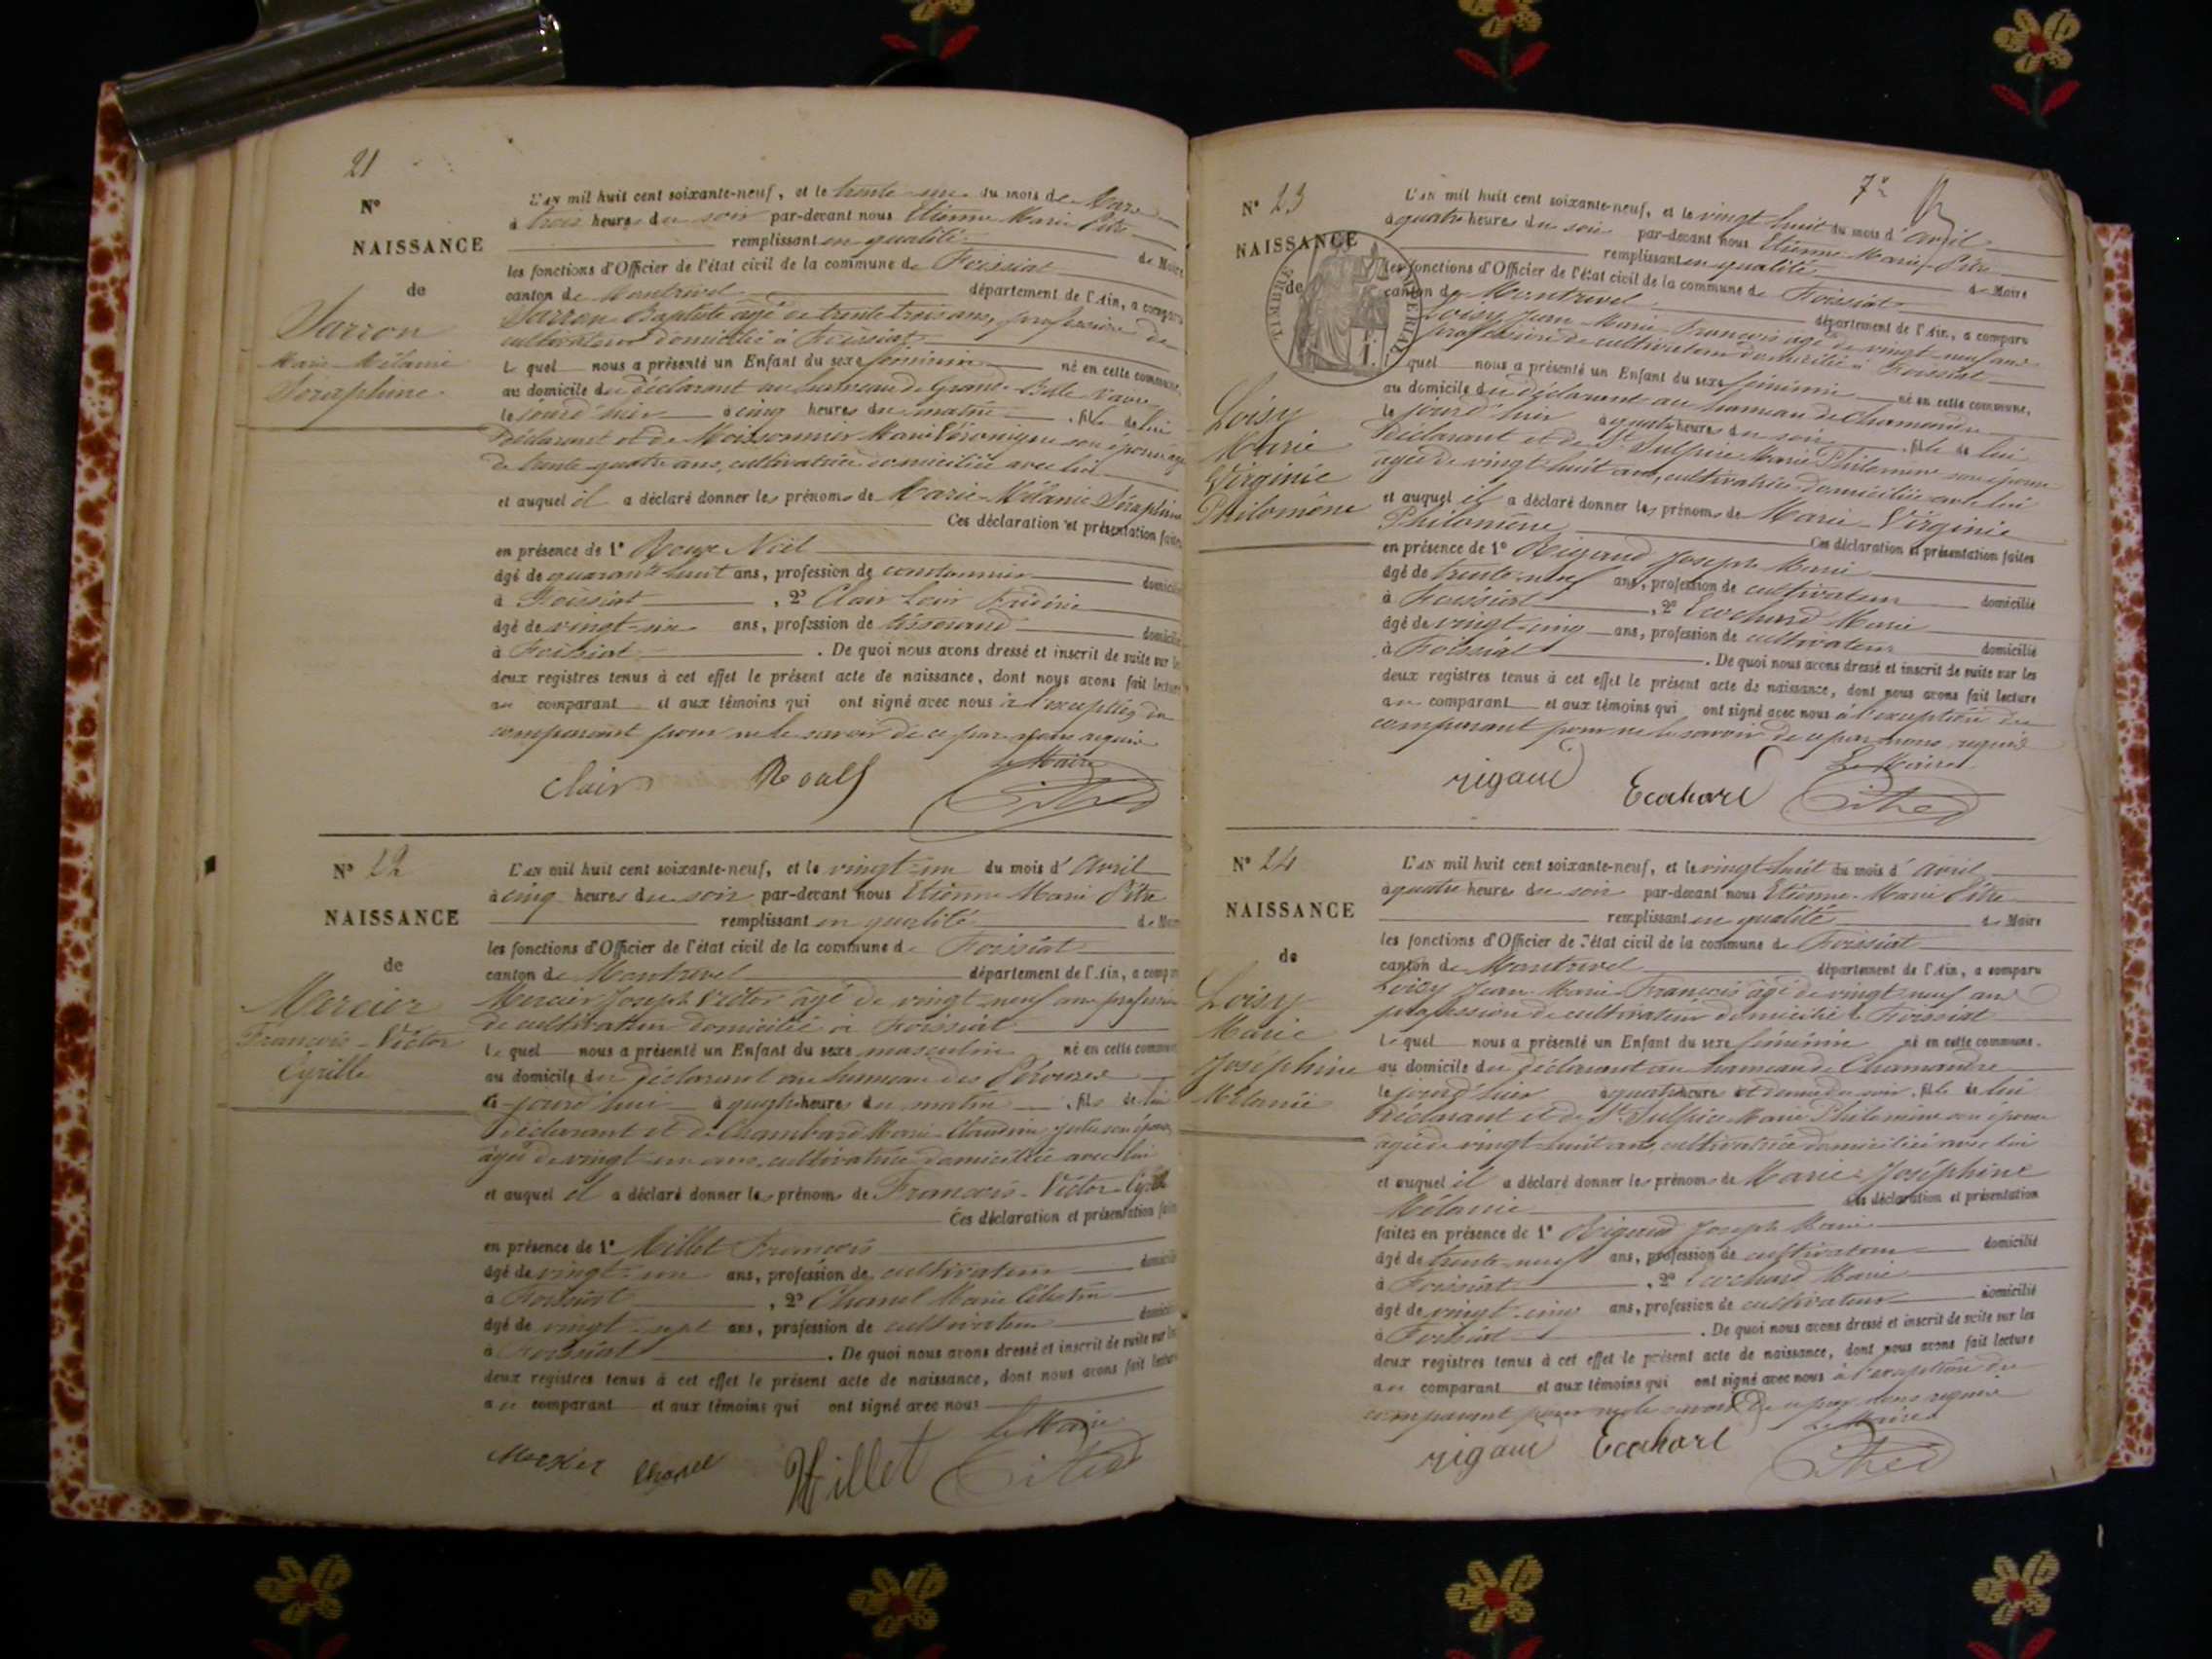 21
N°
NAISSANCE
de
Sarron
Marie Mélanie
Séraphine
L'AN mil huit cent soixante-neuf, et le trente-un du mois de Mars
à trois heures du soir par-devant nous Etienne Marie Pitre
remplissant en qualité de Maire
les fonctions d'Officier de l'état civil de la commune de Foissiat
canton de Montrevel département de l'Ain, a comparu
Sarron Baptiste âgé de trente trois ans, profession de
cultivateur domicilié à Foissiat
lequel nous a présenté un Enfant du sexe féminin né en cette commune,
au domicile du déclarant au hameau de Grande
le jourd'hui à cinq heures du matin, fille de lui
Déclarant et de Moissonnier Marie Véronique son épouse âgée
de trente-quatre ans, cultivatrice domiciliée avec lui
et auquel il a déclaré donner les prénoms de Marie-Mélanie Séraphine
Ces déclaration et présentation faites
en présence de 1° Roux Noël
âgé de quarante huit ans, profession de domicilié
à Foissiat, 2° Clair
âgé de vingt-six ans, profession de tisserand domicilié
à Foissiat. De quoi nous avons dressé et inscrit de suite sur les
deux registres tenus à cet effet le présent acte de naissance, dont nous avons fait lecture
au comparant et aux témoins qui ont signé avec nous à l'exception du
comparant pour ne le savoir de ce par nous requis
Le Maire
Clair Pitre
N° 22
NAISSANCE
de
Mercier
François-Victor
Cyrille
L'AN mil huit cent soixante-neuf, et le vingt-un du mois d'avril
à cinq heures du soir par-devant nous Etienne Marie Pitre
remplissant en qualité de Maire
les fonctions d'Officier de l'état civil de la commune de Foissiat
canton de Montrevel département de l'Ain, a comparu
Mercier Joseph Victor âgé de vingt-neuf ans profession
de cultivateur domicilié à Foissiat
lequel nous a présenté un Enfant du sexe masculin né en cette commune
au domicile du déclarant au hameau des
le jourd'hui à quatre heures du matin, fils de lui
Déclarant et de Chambard Marie Claudine son épouse,
âgée de vingt-un ans, cultivatrice domiciliée avec lui
et auquel il a déclaré donner les prénoms de François-Victor-Cyrille
Ces déclaration et présentation faites
en présence de 1° Millet François
âgé de vingt-un ans, profession de cultivateur domicilié
à Foissiat, 2° Chanel Marie Célestin
âgé de vingt-sept ans, profession de cultivateur domicilié
à Foissiat. De quoi nous avons dressé et inscrit de suite sur les
deux registres tenus à cet effet le présent acte de naissance, dont nous avons fait lecture
au comparant et aux témoins qui ont signé avec nous
Le Maire
Mercier Chanel Millet Pitre
7e
N° 23
NAISSANCE
de
TIMBRE IMPÉRIAL
Loisy
Marie
Virginie
Philomène
L'AN mil huit cent soixante-neuf, et le vingt huit du mois d'avril
à quatre heures du soir par-devant nous Etienne-Marie-Pitre
remplissant en qualité de Maire
les fonctions d'Officier de l'état civil de la commune de Foissiat
canton de Montrevel département de l'Ain, a comparu
Loisy Jean-Marie-François âgé de vingt-neuf ans
profession de cultivateur domicilié à Foissiat
lequel nous a présenté un Enfant du sexe féminin né en cette commune,
au domicile du déclarant au hameau de Chamandre
le jourd'hui à quatre heures du soir, fille de lui
Déclarant et de St Sulpice Marie Philomène son épouse
âgée de vingt-huit ans, cultivatrice domiciliée avec lui
et auquel il a déclaré donner les prénoms de Marie-Virginie
Philomène Ces déclaration et présentation faites
en présence de 1° Rigaud Joseph Marie
âgé de trente-neuf ans, profession de cultivateur domicilié
à Foissiat, 2° Ecochard Marie
âgé de vingt-cinq ans, profession de cultivateur domicilié
à Foissiat. De quoi nous avons dressé et inscrit de suite sur les
deux registres tenus à cet effet le présent acte de naissance, dont nous avons fait lecture
au comparant et aux témoins qui ont signé avec nous à l'exception du
comparant pour ne le savoir de ce par nous requis
Le Maire
rigaud Ecochard Pitre
N° 24
NAISSANCE
de
Loisy
Marie
Joséphine
Mélanie
L'AN mil huit cent soixante-neuf, et le vingt-huit du mois d'avril
à quatre heures du soir par-devant nous Etienne-Marie Pitre
remplissant en qualité de Maire
les fonctions d'Officier de l'état civil de la commune de Foissiat
canton de Montrevel département de l'Ain, a comparu
Loisy Jean-Marie-François âgé de vingt neuf ans
profession de cultivateur domicilié à Foissiat
lequel nous a présenté un Enfant du sexe féminin né en cette commune.
au domicile du déclarant au hameau de Chamandre
le jourd'hui à quatre heures et demie du soir, fille de lui
Déclarant et de St Sulpice Marie Philomène son épouse
âgée de vingt-huit ans, cultivatrice domiciliée avec lui
et auquel il a déclaré donner les prénoms de Marie-Joséphine
Mélanie Ces déclaration et présentation
faites en présence de 1° Rigaud Joseph Marie
âgé de trente-neuf ans, profession de cultivateur domicilié
à Foissiat, 2° Ecochard Marie
âgé de vingt-cinq ans, profession de cultivateur domicilié
à Foissiat. De quoi nous avons dressé et inscrit de suite sur les
deux registres tenus à cet effet le présent acte de naissance, dont nous avons fait lecture
au comparant et aux témoins qui ont signé avec nous à l'exception du
comparant pour ne le savoir de ce par nous requis
Le Maire
rigaud Ecochard Pitre